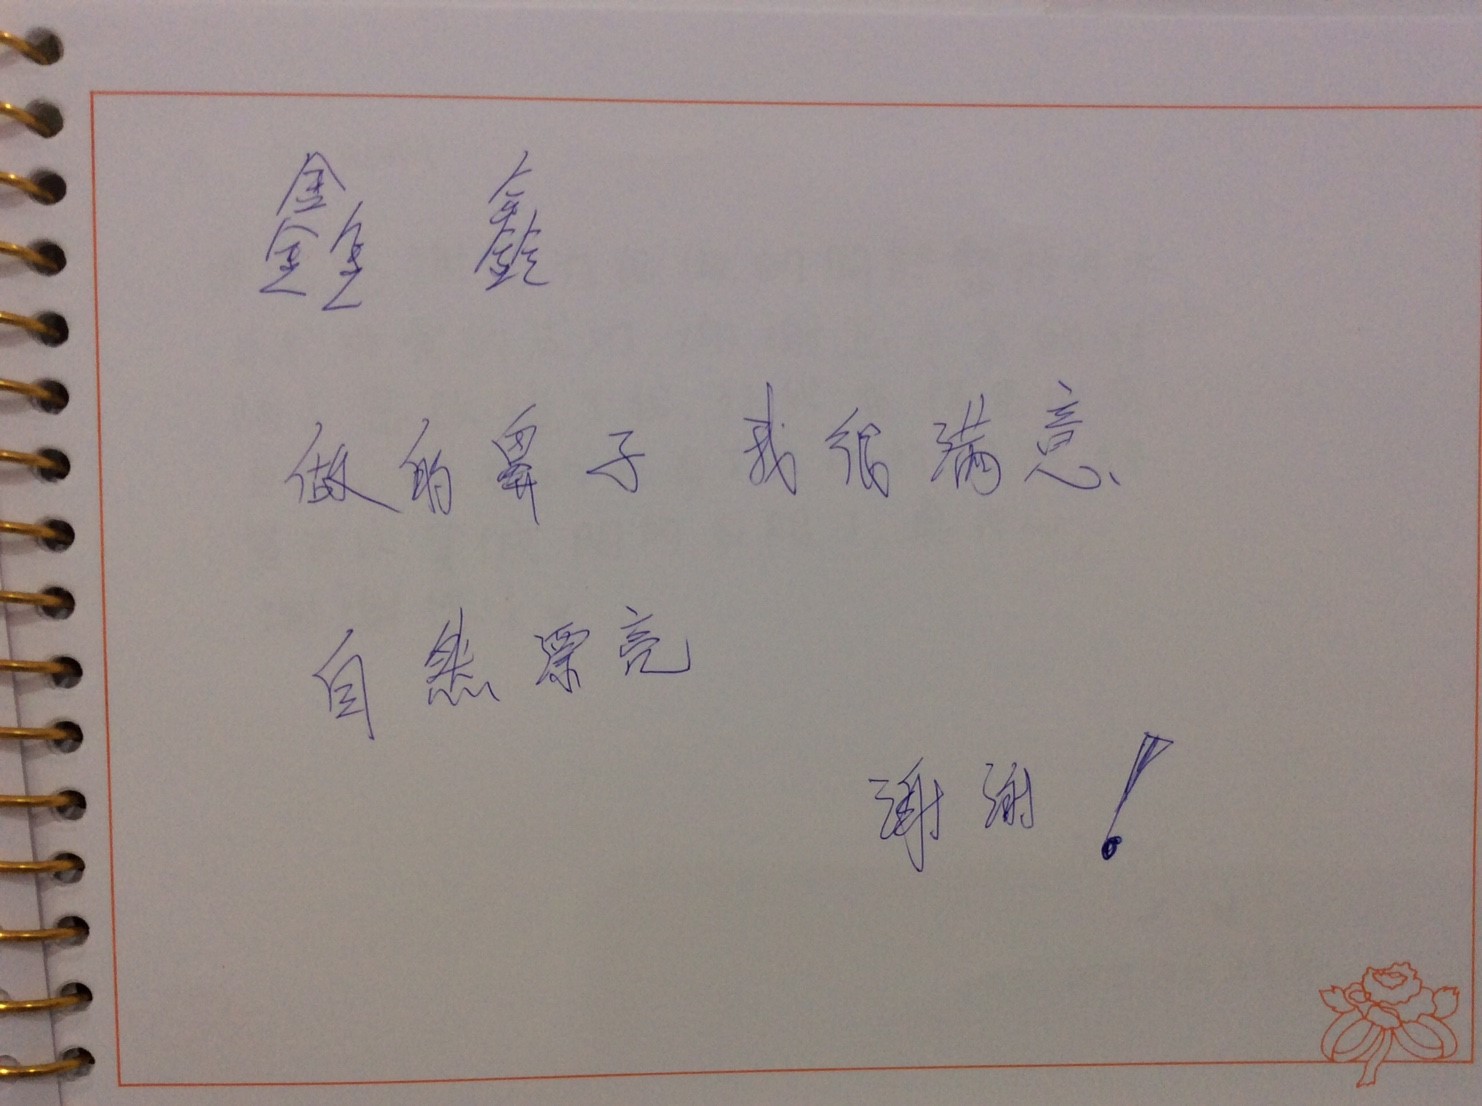 鑫 鑫
做的鼻子 我很满意、
自然漂亮
谢谢！